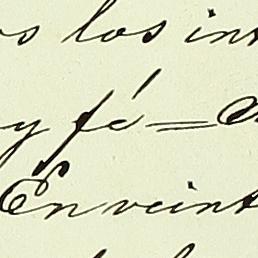 os los int
y fé =
En veint